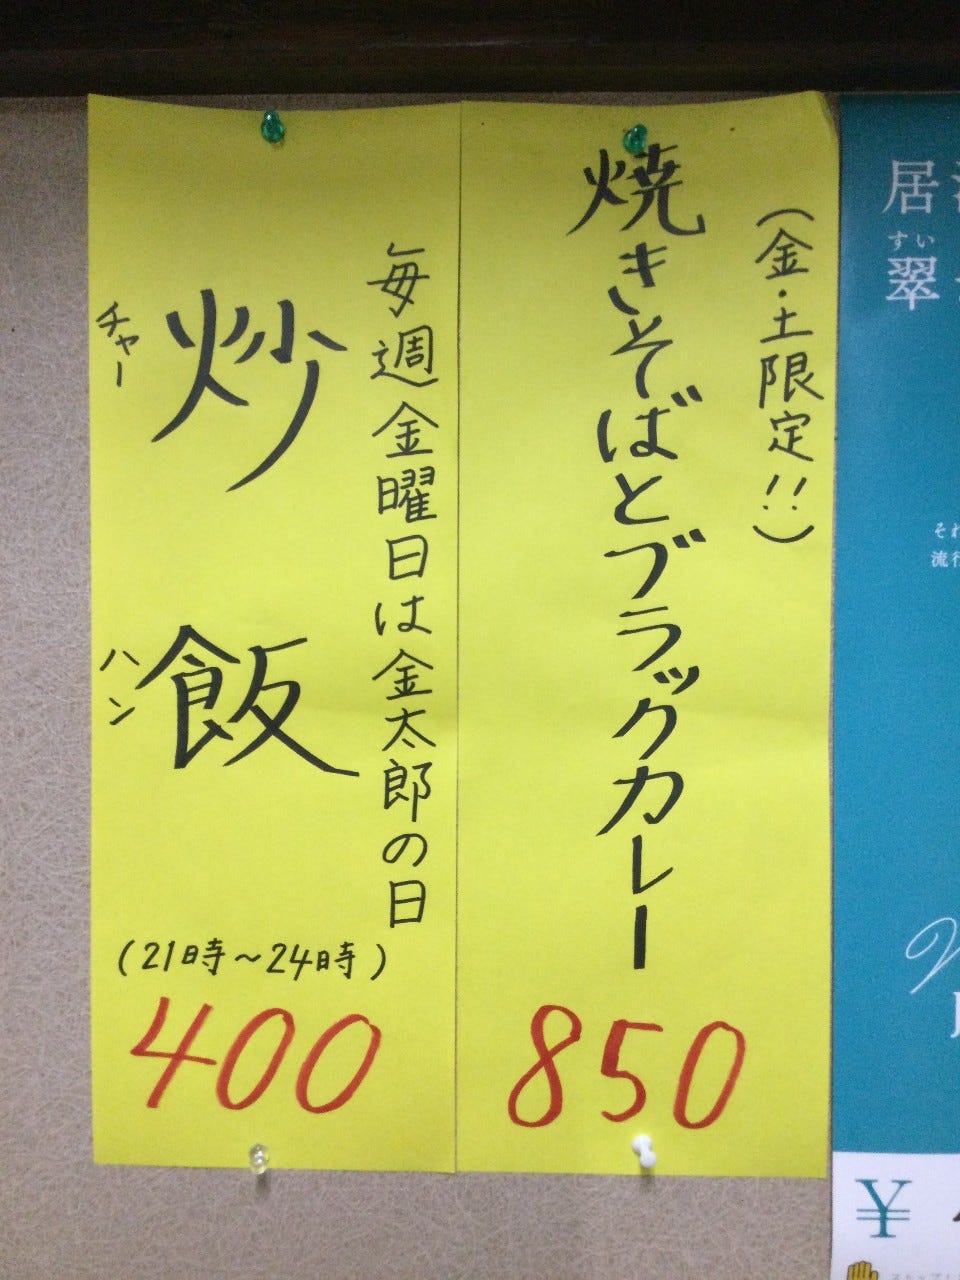 (金・土限定!!)
焼きそばとブラックカレー
850
毎週金曜日は金太郎の日
炒飯
チャーハン
(21時~24時)
400
居
すい
翠
それ
流行
¥